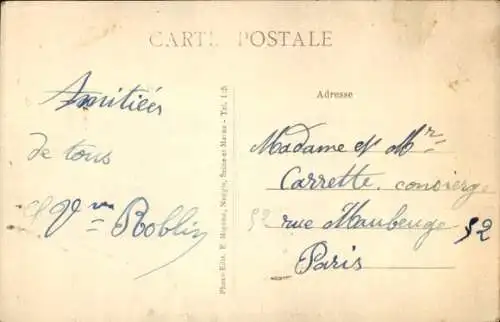 CARTE POSTALE
Amitiées
de tous
Vve Roblin
Photo-Edit. F. Mignon, Nangis, Seine-et-Marne - Tél. 1.25
Adresse
Madame et Mr
Carrette. concierge
52 rue Maubeuge 52
Paris